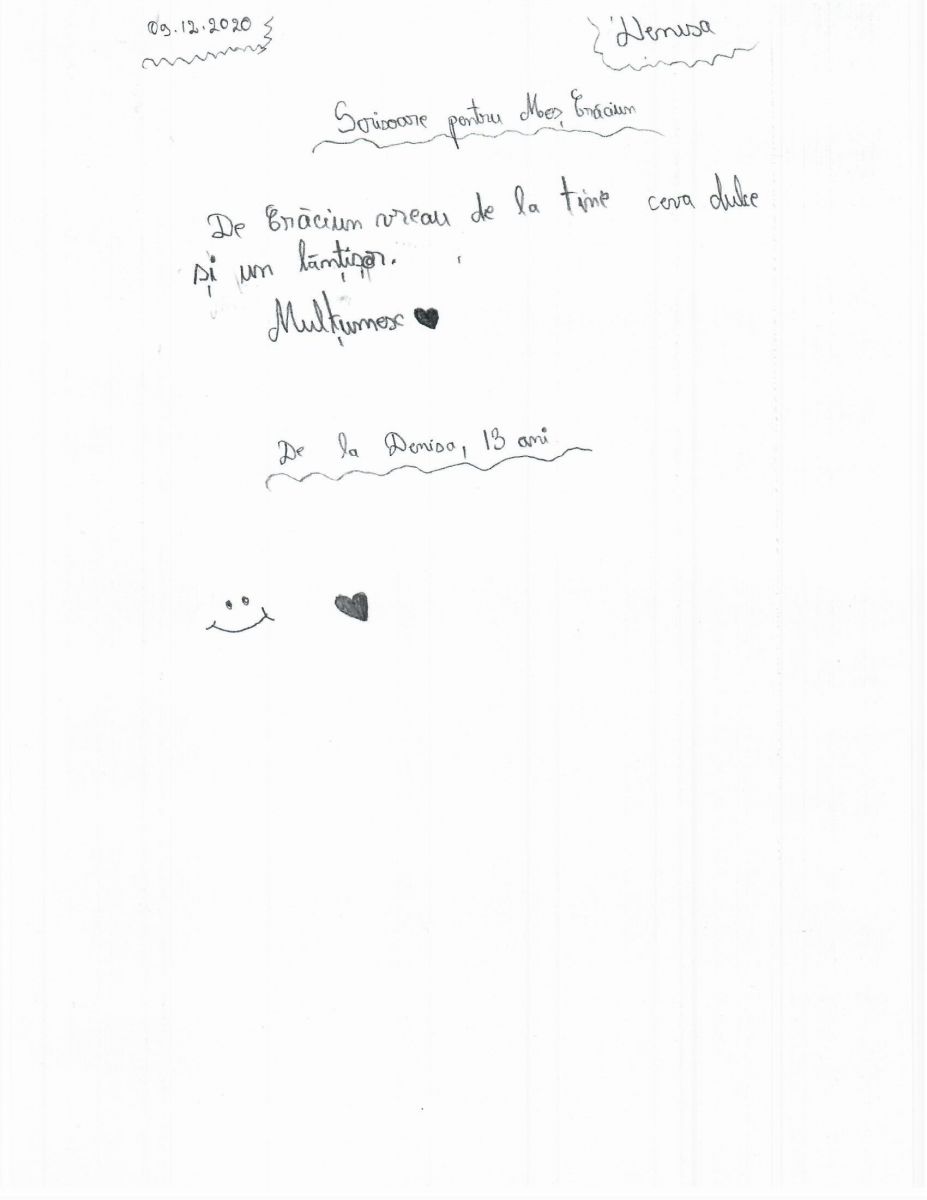 09.12.2020
Denisa
Scrisoare pentru Moș Crăciun
De Crăciun vreau de la tine ceva dulce
și un lănțișor.
Mulțumesc ♥
De la Denisa, 13 ani